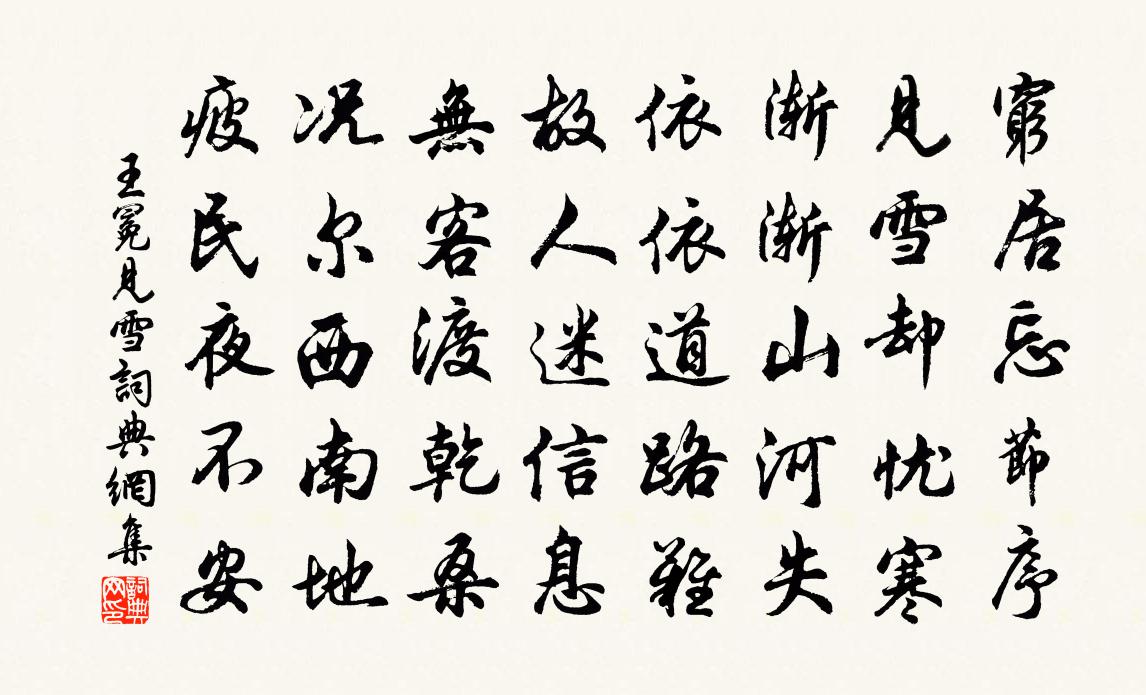 窮居忘節序
見雪却忧寒
漸漸山河失
依依道路難
故人迷信息
無客渡乾桑
况尔西南地
疲民夜不安
王冕見雪詞典網集
詞典网印